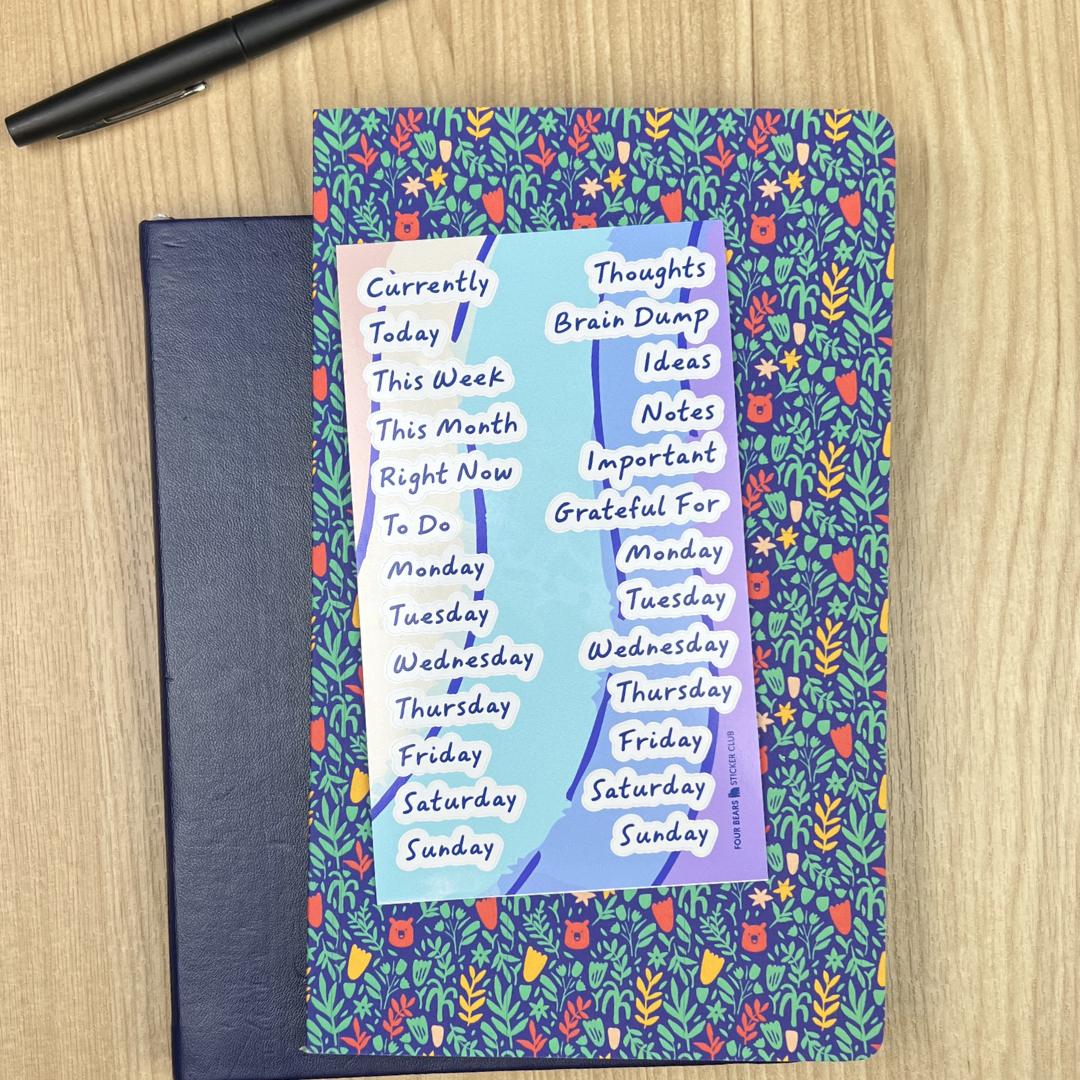 Currently
Today
This Week
This Month
Right Now
To Do
Monday
Tuesday
Wednesday
Thursday
Friday
Saturday
Sunday
Thoughts
Brain Dump
Ideas
Notes
Important
Grateful For
Monday
Tuesday
Wednesday
Thursday
Friday
Saturday
Sunday
FOUR BEARS STICKER CLUB